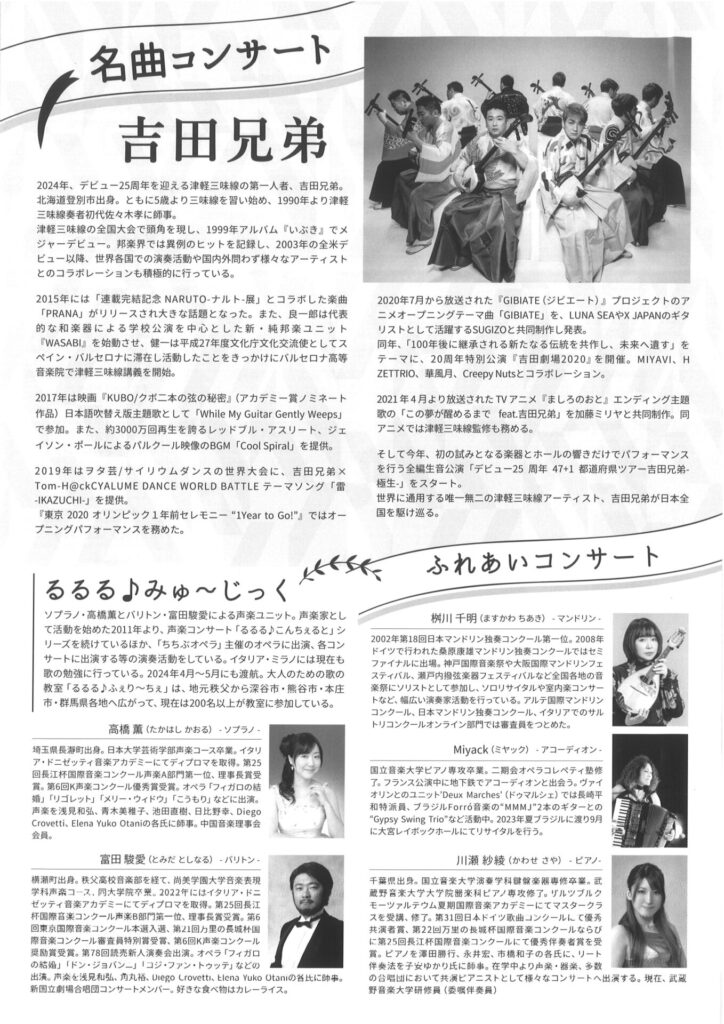 名曲コンサート
吉田兄弟
2024年、デビュー25周年を迎える津軽三味線の第一人者、吉田兄弟。
北海道登別市出身。ともに5歳より三味線を習い始め、1990年より津軽
三味線奏者初代佐々木孝に師事。
津軽三味線の全国大会で頭角を現し、1999年アルバム『いぶき』でメ
ジャーデビュー。邦楽界では異例のヒットを記録し、2003年の全米デ
ビュー以降、世界各国での演奏活動や国内外問わず様々なアーティスト
とのコラボレーションも積極的に行っている。
2015年には「連載完結記念 NARUTO-ナルト-展」とコラボした楽曲
「PRANA」がリリースされ大きな話題となった。また、良一郎は代表
的な和楽器による学校公演を中心とした新・純邦楽ユニット
『WASABI』を始動させ、健一は平成27年度文化庁文化交流使として
スペイン・バルセロナに滞在し活動したことをきっかけにバルセロナ高等
音楽院で津軽三味線講義を開始。
2017年は映画『KUBO/クボ二本の弦の秘密』（アカデミー賞ノミネート
作品）日本語吹替え版主題歌として「While My Guitar Gently Weeps」
で参加。また、約3000万回再生を誇るレッドブル・アスリート、ジェ
イソン・ポールによるパルクール映像のBGM「Cool Spiral」を提供。
2019年はヲタ芸/サイリウムダンスの世界大会に、吉田兄弟×
Tom-H@ckCYALUME DANCE WORLD BATTLE テーマソング「雷
-IKAZUCHI-」を提供。
『東京 2020 オリンピック 1 年前セレモニー “1Year to Go!”』ではオー
プニングパフォーマンスを務めた。
2020年7月から放送された『GIBIATE（ジビエート）』プロジェクトのア
ニメオープニングテーマ曲「GIBIATE」を、LUNA SEAやX JAPANのギタ
リストとして活躍するSUGIZOと共同制作し発表。
同年、「100年後に継承される新たなる伝統を共作し、未来へ遺す」を
テーマに、20周年特別公演『吉田劇場2020』を開催。MIYAVI、H
ZETTRIO、華風月、Creepy Nutsとコラボレーション。
2021 年 4 月より放送された TV アニメ『ましろのおと』エンディング主題
歌の「この夢が醒めるまで feat.吉田兄弟」を加藤ミリヤと共同制作。同
アニメでは津軽三味線監修も務める。
そして今年、初の試みとなる楽器とホールの響きだけでパフォーマンス
を行う全編生音公演「デビュー25 周年 47+1 都道府県ツアー吉田兄弟-
極生-」をスタート。
世界に通用する唯一無二の津軽三味線アーティスト、吉田兄弟が日本全
国を駆け巡る。
ふれあいコンサート
るるる♪みゅ〜じっく
ソプラノ・高橋薫とバリトン・富田駿愛による声楽ユニット。声楽家とし
て活動を始めた2011年より、声楽コンサート「るるる♪こんちぇると」シ
リーズを続けているほか、「ちちぶオペラ」主催のオペラに出演、各コン
サートに出演する等の演奏活動をしている。イタリア・ミラノには現在も
歌の勉強に行っている。2024年4月〜5月にも渡航。大人のための歌の
教室「るるる♪ふぇり〜ちぇ」は、地元秩父から深谷市・熊谷市・本庄
市・群馬県各地へ広がって、現在は200名以上が教室に参加している。
高橋 薫（たかはし かおる） - ソプラノ -
埼玉県長瀞町出身。日本大学芸術学部声楽コース卒業。イタリ
ア・ドニゼッティ音楽アカデミーにてディプロマを取得。第25
回長江杯国際音楽コンクール声楽A部門第一位、理事長賞受
賞。第6回K声楽コンクール優秀賞受賞。オペラ「フィガロの結
婚」「リゴレット」「メリー・ウィドウ」「こうもり」などに出演。
声楽を浅見和弘、青木美稚子、池田直樹、日比野幸、Diego
Crovetti、Elena Yuko Otaniの各氏に師事。中国音楽理事会
会員。
富田 駿愛（とみだ としなる） - バリトン -
横瀬町出身。秩父高校音楽部を経て、尚美学園大学音楽表現
学科声楽コース、同大学院卒業。2022年にはイタリア・ドニ
ゼッティ音楽アカデミーにてディプロマを取得。第25回長江
杯国際音楽コンクール声楽B部門第一位、理事長賞受賞。第6
回東京国際音楽コンクール本選入選、第21回万里の長城杯国
際音楽コンクール審査員特別賞受賞、第6回K声楽コンクール
奨励賞受賞。第78回読売新人演奏会出演。オペラ「フィガロ
の結婚」「ドン・ジョバンニ」「コジ・ファン・トゥッテ」などの
出演。声楽を浅見和弘、角丸裕、Diego Crovetti、Elena Yuko Otaniの各氏に師事。
新国立劇場合唱団コンサートメンバー。好きな食べ物はカレーライス。
桝川 千明（ますかわ ちあき） - マンドリン -
2002年第18回日本マンドリン独奏コンクール第一位。2008年
ドイツで行われた桑原康雄マンドリン独奏コンクールではセミ
ファイナルに出場。神戸国際音楽祭や大阪国際マンドリンフェ
スティバル、瀬戸内撥弦楽器フェスティバルなど全国各地の音
楽祭にソリストとして参加し、ソロリサイタルや室内楽コンサー
トなど、幅広い演奏家活動を行っている。アルテ国際マンドリン
コンクール、日本マンドリン独奏コンクール、イタリアでのサル
トリコンクールオンライン部門では審査員をつとめた。
Miyack（ミヤック） - アコーディオン -
国立音楽大学ピアノ専攻卒業。二期会オペラコレペティ塾修
了。フランス公演中に地下鉄でアコーディオンと出会う。ヴァイ
オリンとのユニット'Deux Marches'（ドゥマルシェ）では長崎平
和特派員、ブラジルForró音楽の“MMMJ”2本のギターとの
“Gypsy Swing Trio”など活動中。2023年夏ブラジルに渡り9月
に大宮レイボックホールにてリサイタルを行う。
川瀬 紗綾（かわせ さや） - ピアノ-
千葉県出身。国立音楽大学演奏学科鍵盤楽器専修卒業。武
蔵野音楽大学大学院器楽科ピアノ専攻修了。ザルツブルク
モーツァルテウム夏期国際音楽アカデミーにてマスタークラ
スを受講、修了。第31回日本ドイツ歌曲コンクールにて優秀
共演者賞、第22万里の長城杯国際音楽コンクールならび
に第25回長江杯国際音楽コンクールにて優秀伴奏者賞を受
賞。ピアノを澤田勝行、永井宏、市橋和子の各氏に、リート
伴奏法を子安ゆかり氏に師事。在学中より声楽・器楽、多数
の合唱団において共演ピアニストとして様々なコンサートへ出演する。現在、武蔵
野音楽大学研修員（委嘱伴奏員）